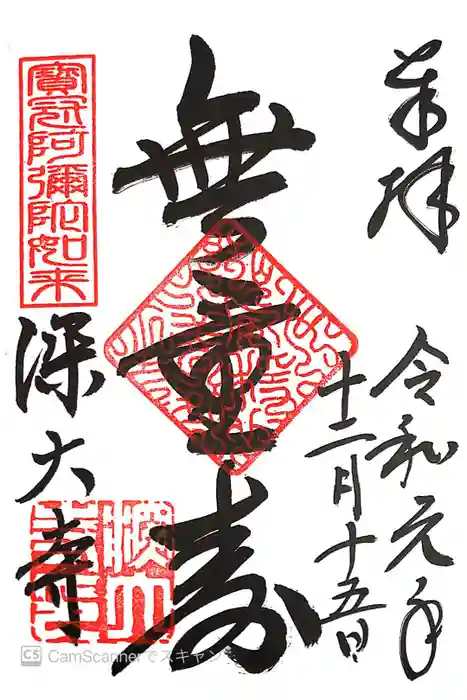 奉拝
令和元年
十二月十五日
無量寿
寶冠阿彌陀如来
深大寺
CamScannerでスキャン